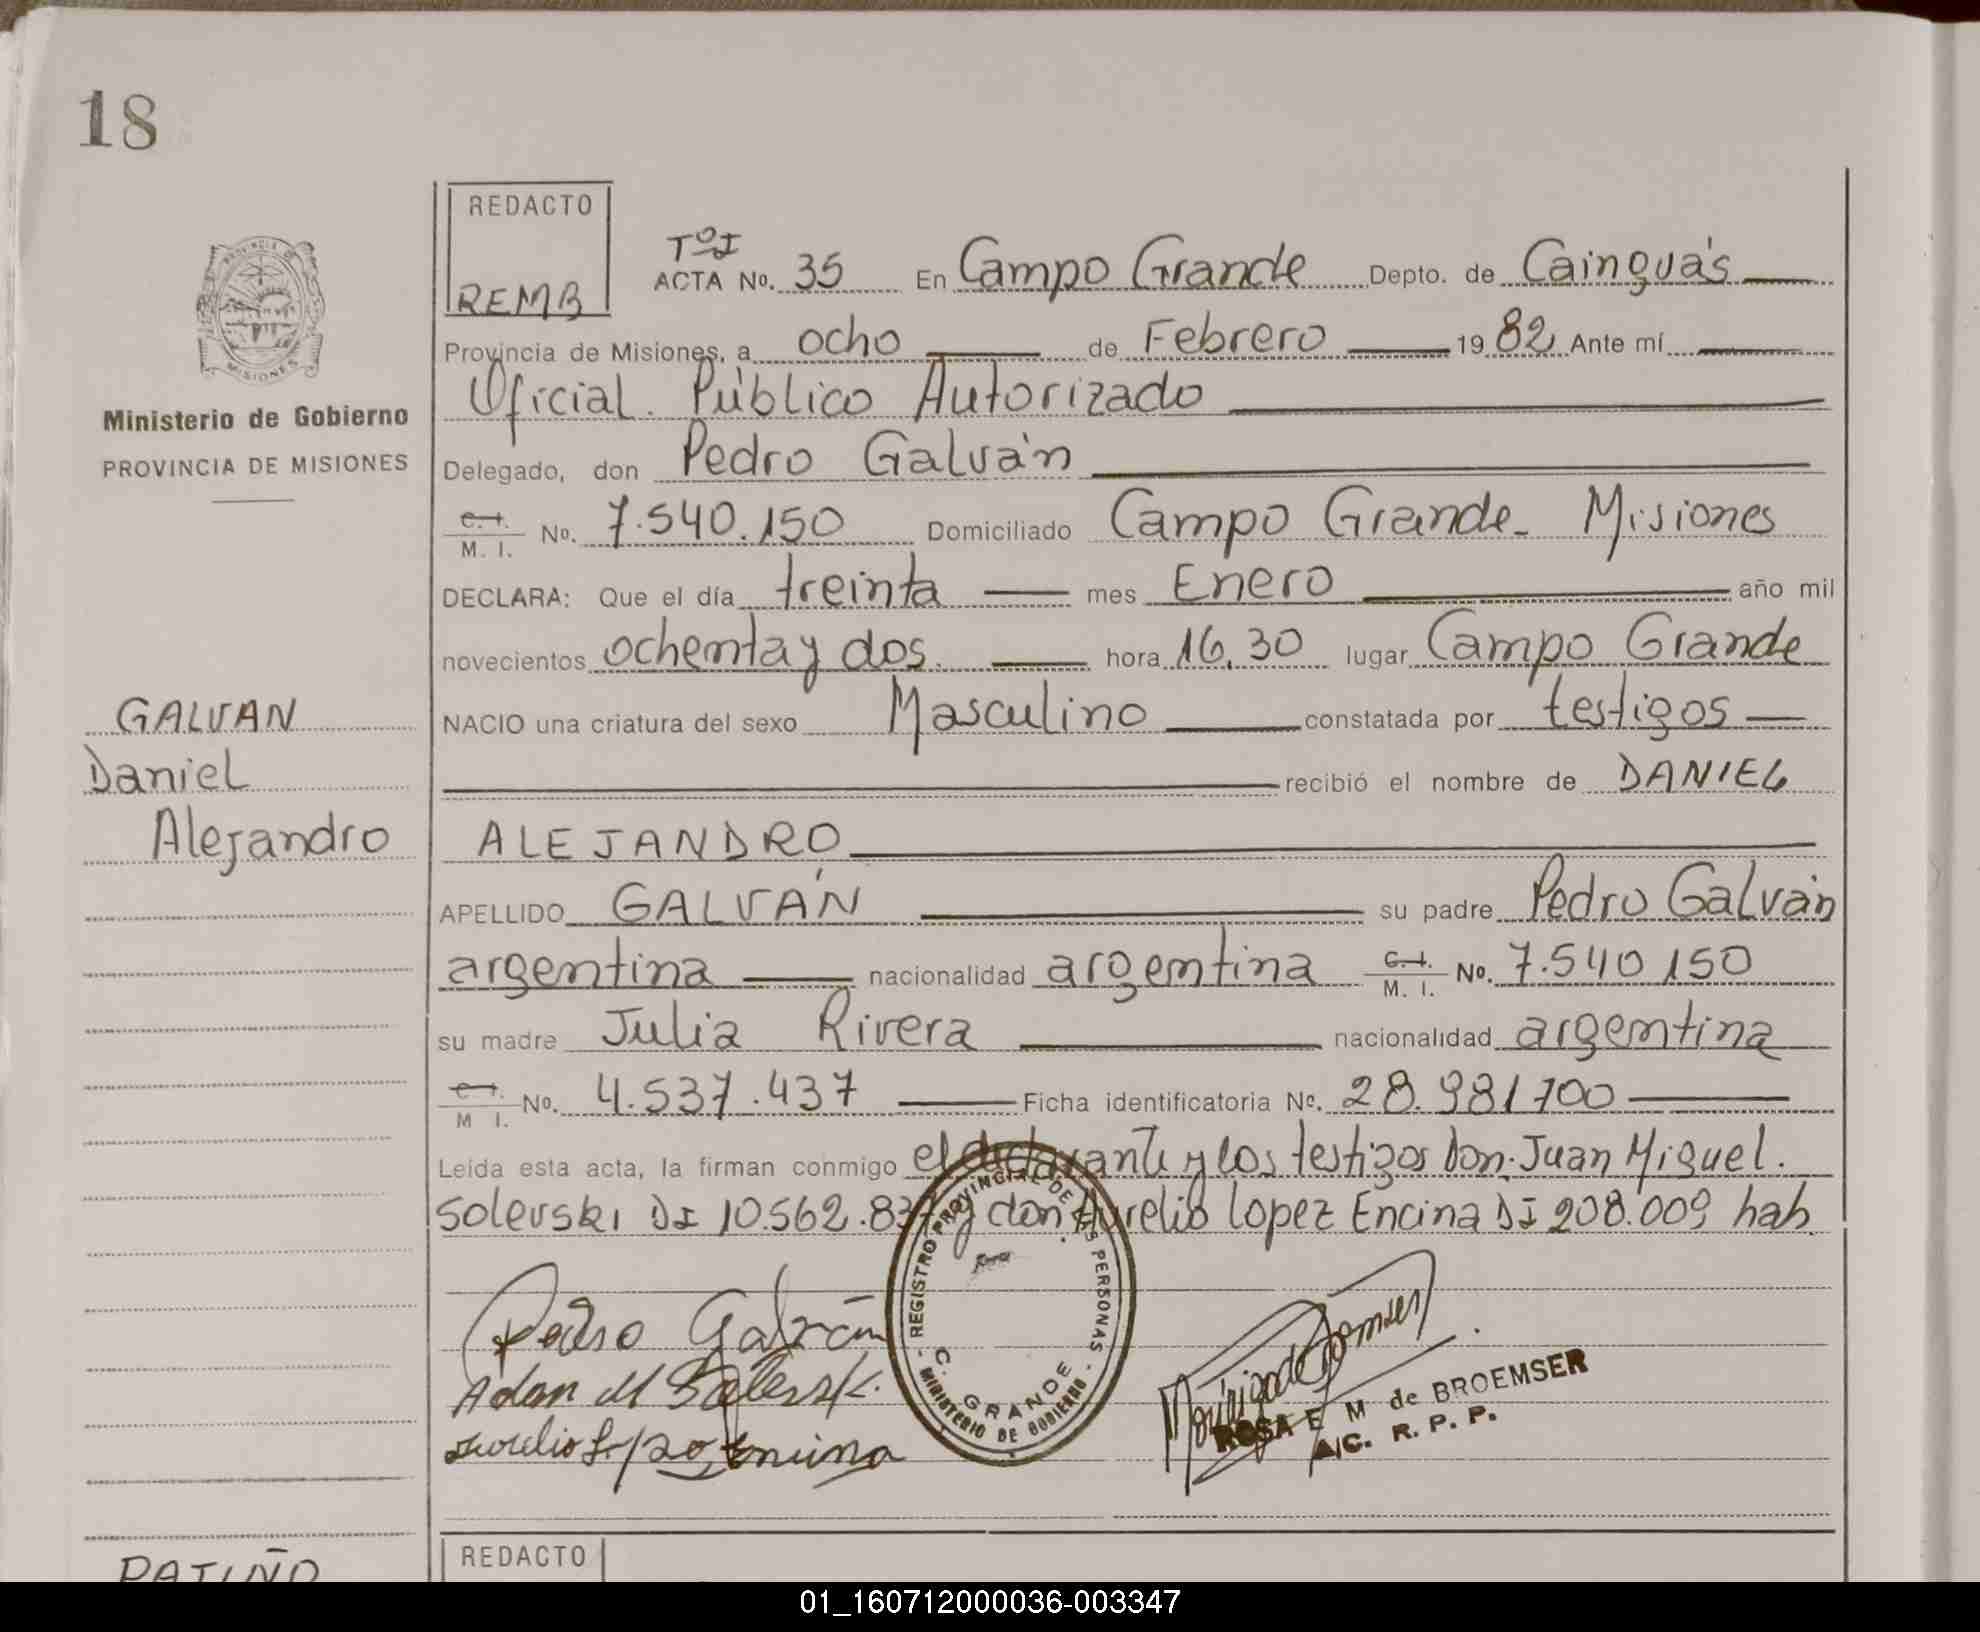 18
REDACTO
REMB
Tº I
ACTA No. 35 En Campo Grande Depto. de Cainguás
Provincia de Misiones, a ocho de Febrero 1982 Ante mí
Oficial Público Autorizado
Ministerio de Gobierno
PROVINCIA DE MISIONES
Delegado, don Pedro Galván
C. I. M. I. No. 7.540.150 Domiciliado Campo Grande - Misiones
DECLARA: Que el día treinta mes Enero año mil
novecientos ochenta y dos. hora 16,30 lugar Campo Grande
GALVAN
Daniel
Alejandro
NACIO una criatura del sexo Masculino constatada por testigos
recibió el nombre de DANIEL
ALEJANDRO
APELLIDO GALVÁN su padre Pedro Galván
argentina nacionalidad argentina C. I. M. I. No. 7.540 150
su madre Julia Rivera nacionalidad argentina
C. I. M I. No. 4.537.437 Ficha identificatoria No. 28.981700
Leída esta acta, la firman conmigo el declarante y los testigos Don. Juan Miguel.
Solevski DI 10.562.837 y don Aurelio Lopez Encina DI 208.009 hab.
Pedro Galván
Aurelio Lopez Encina
REGISTRO PROVINCIAL DE LAS PERSONAS
C. GRANDE
MINISTERIO DE GOBIERNO
ROSA E M de BROEMSER
A/C. R. P. P.
PATIÑO
REDACTO
01_160712000036-003347